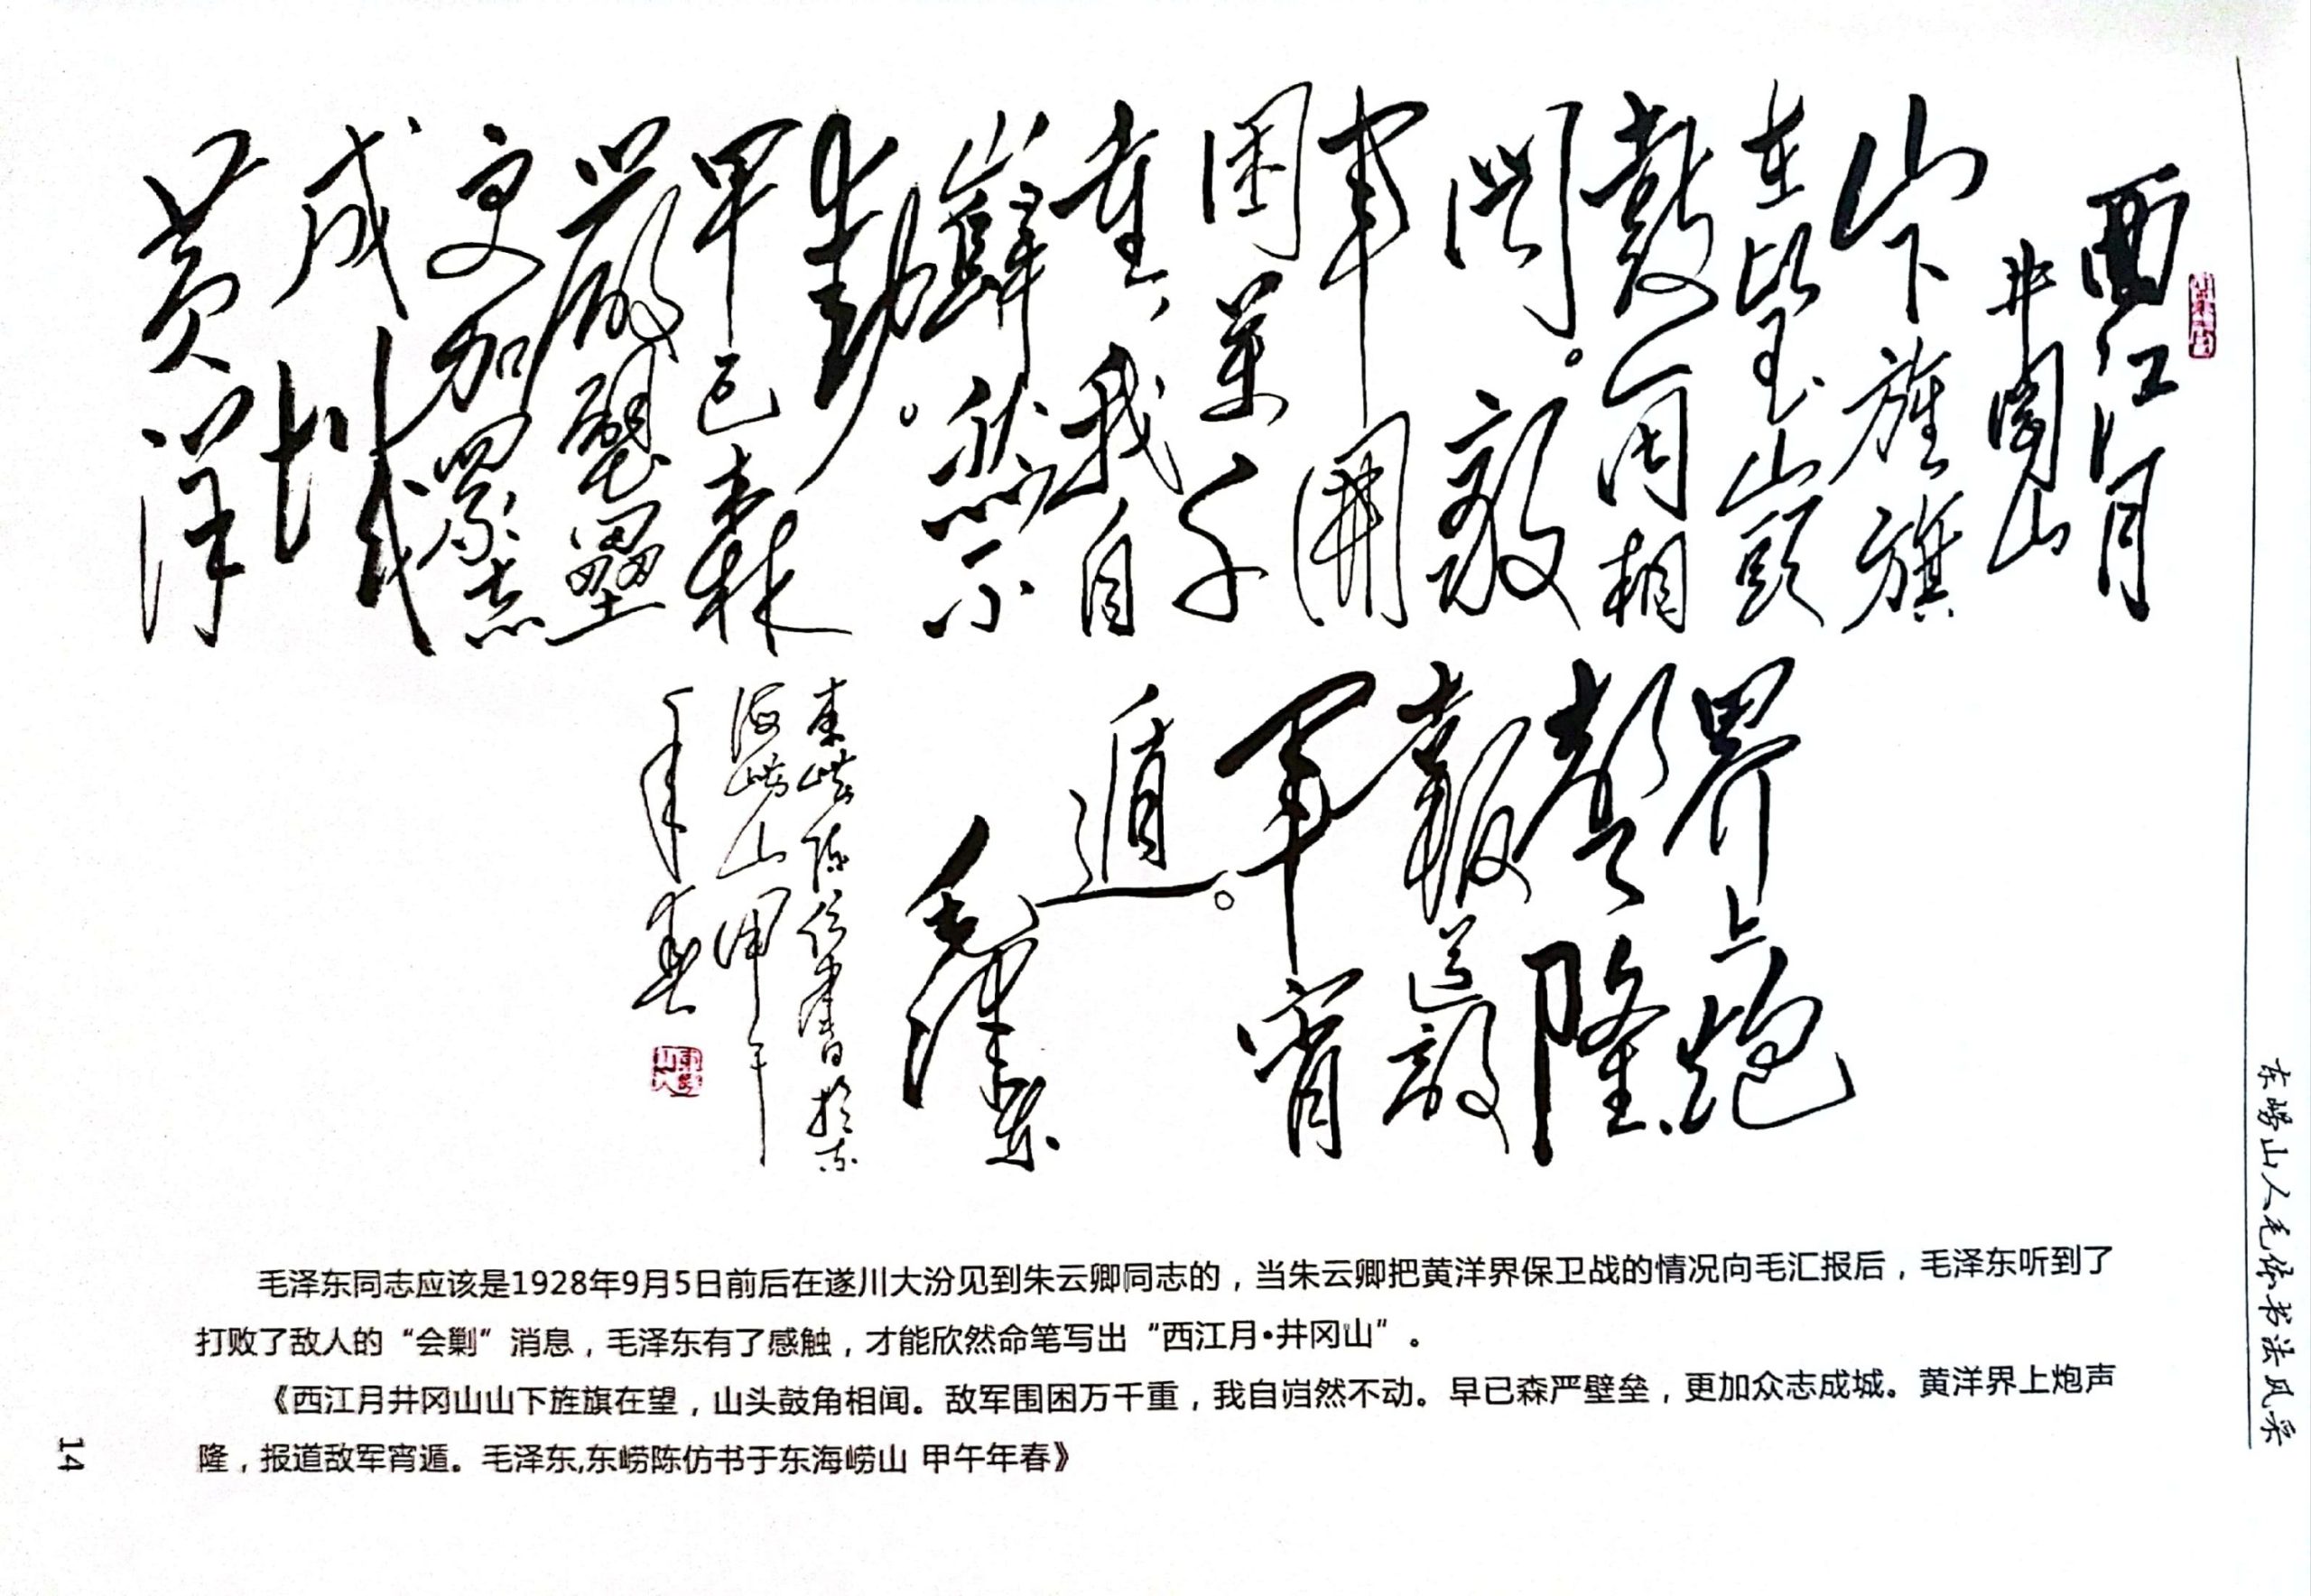 西江月
井岡山
山下旌旗
在望山頭
鼓角相
聞。敵
軍圍
困萬千
重,我自
巋然不
動。
早已森
嚴壁壘
更加眾志
成城
黃洋
界上炮
聲隆
報道敵
軍宵
遁。
毛澤東
東嶗陈仿書於东
海嶗山甲午
年春
毛泽东同志应该是1928年9月5日前后在遂川大汾见到朱云卿同志的，当朱云卿把黄洋界保卫战的情况向毛汇报后，毛泽东听到了
打败了敌人的“会剿”消息，毛泽东有了感触，才能欣然命笔写出“西江月•井冈山”。
《西江月井冈山山下旌旗在望，山头鼓角相闻。敌军围困万千重，我自岿然不动。早已森严壁垒，更加众志成城。黄洋界上炮声
隆，报道敌军宵遁。毛泽东,东崂陈仿书于东海崂山 甲午年春》
东崂山人毛体书法风采
14